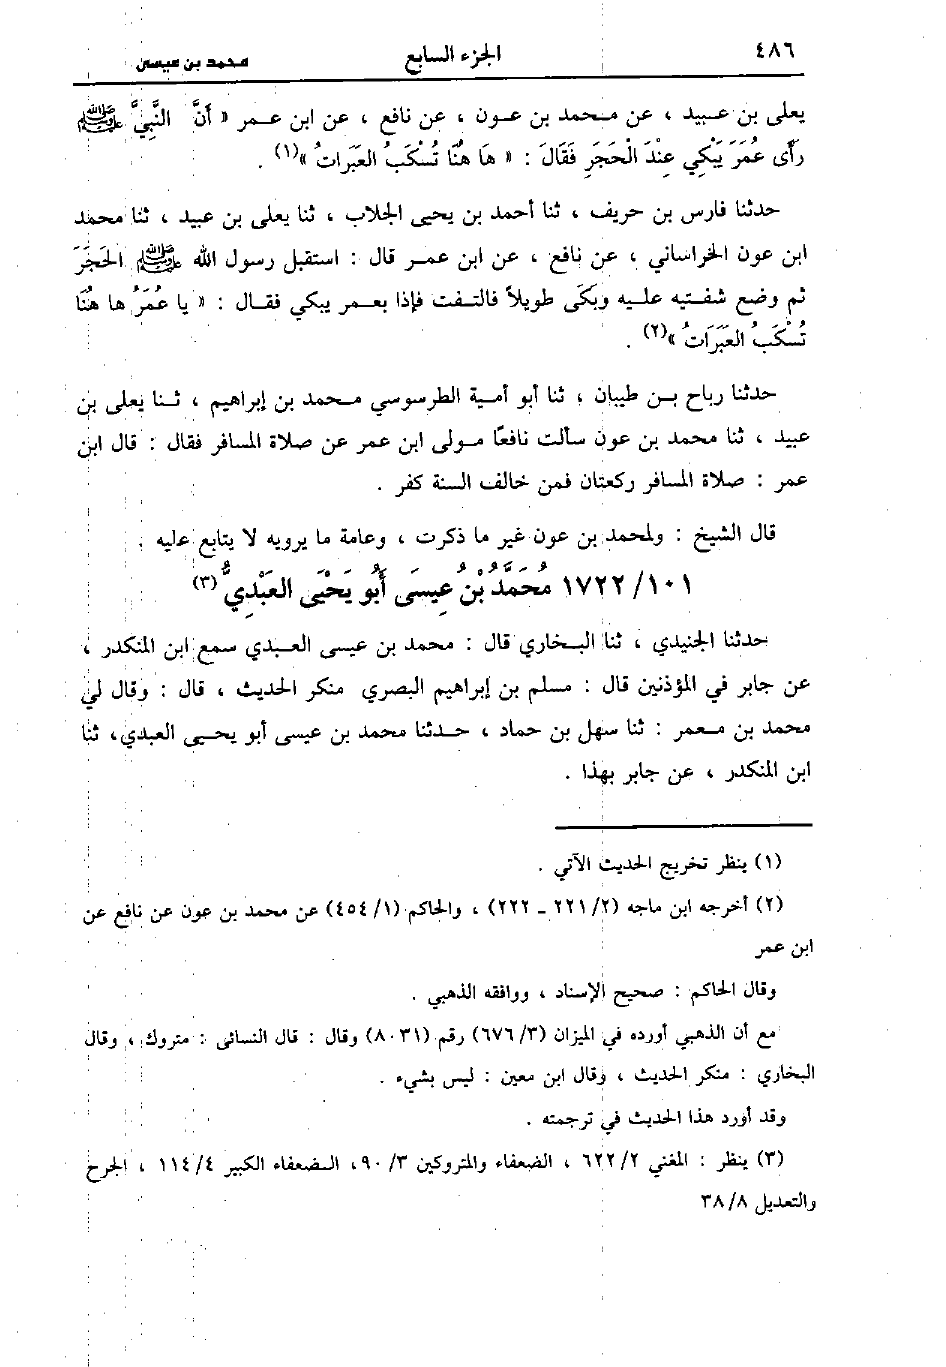 ٤٨٦ الجزء السابع محمد بن عيسى
يعلى بن عبيد ، عن محمد بن عون ، عن نافع ، عن ابن عمر « أَنَّ النَّبِيَّ ﷺ
رَأَى عُمَرَ يَبْكِي عِنْدَ الْحَجَرِ فَقَالَ : « هَا هُنَا تُسْكَبُ العَبَرَاتُ »(١) .
حدثنا فارس بن حريف ، ثنا أحمد بن يحيى الجلاب ، ثنا يعلى بن عبيد ، ثنا محمد
ابن عون الخراساني ، عن نافع ، عن ابن عمر قال : استقبل رسول الله ﷺ الحَجَرَ
ثم وضع شفتيه عليه وبكَى طويلاً فالتفت فإذا بعمر يبكي فقال : « يا عُمَرُ ها هُنَا
تُسْكَبُ العَبَرَاتُ »(٢) .
حدثنا رباح بن طيبان ، ثنا أبو أمية الطرسوسي محمد بن إبراهيم ، ثنا يعلى بن
عبيد ، ثنا محمد بن عون سألت نافعًا مولى ابن عمر عن صلاة المسافر فقال : قال ابن
عمر : صلاة المسافر ركعتان فمن خالف السنة كفر .
قال الشيخ : ولمحمد بن عون غير ما ذكرت ، وعامة ما يرويه لا يتابع عليه .
١٧٢٢/١٠١ مُحَمَّدُ بْنُ عِيسَى أَبُو يَحْيَى العَبْدِيُّ (٣)
حدثنا الجنيدي ، ثنا البخاري قال : محمد بن عيسى العبدي سمع ابن المنكدر ،
عن جابر في المؤذنين قال : مسلم بن إبراهيم البصري منكر الحديث ، قال : وقال لي
محمد بن معمر : ثنا سهل بن حماد ، حدثنا محمد بن عيسى أبو يحيى العبدي، ثنا
ابن المنكدر ، عن جابر بهذا .
(١) ينظر تخريج الحديث الآتي .
(٢) أخرجه ابن ماجه (٢٢١/٢ - ٢٢٢) ، والحاكم (٤٥٤/١) عن محمد بن عون عن نافع عن
ابن عمر
وقال الحاكم : صحيح الإسناد ، ووافقه الذهبي .
مع أن الذهبي أورده في الميزان (٦٧٦/٣) رقم (٨٠٣١) وقال : قال النسائى : متروك ، وقال
البخاري : منكر الحديث ، وقال ابن معين : ليس بشيء .
وقد أورد هذا الحديث في ترجمته .
(٣) ينظر : المغني ٦٢٢/٢ ، الضعفاء والمتروكين ٩٠/٣، الضعفاء الكبير ١١٤/٤ ، الجرح
والتعديل ٣٨/٨